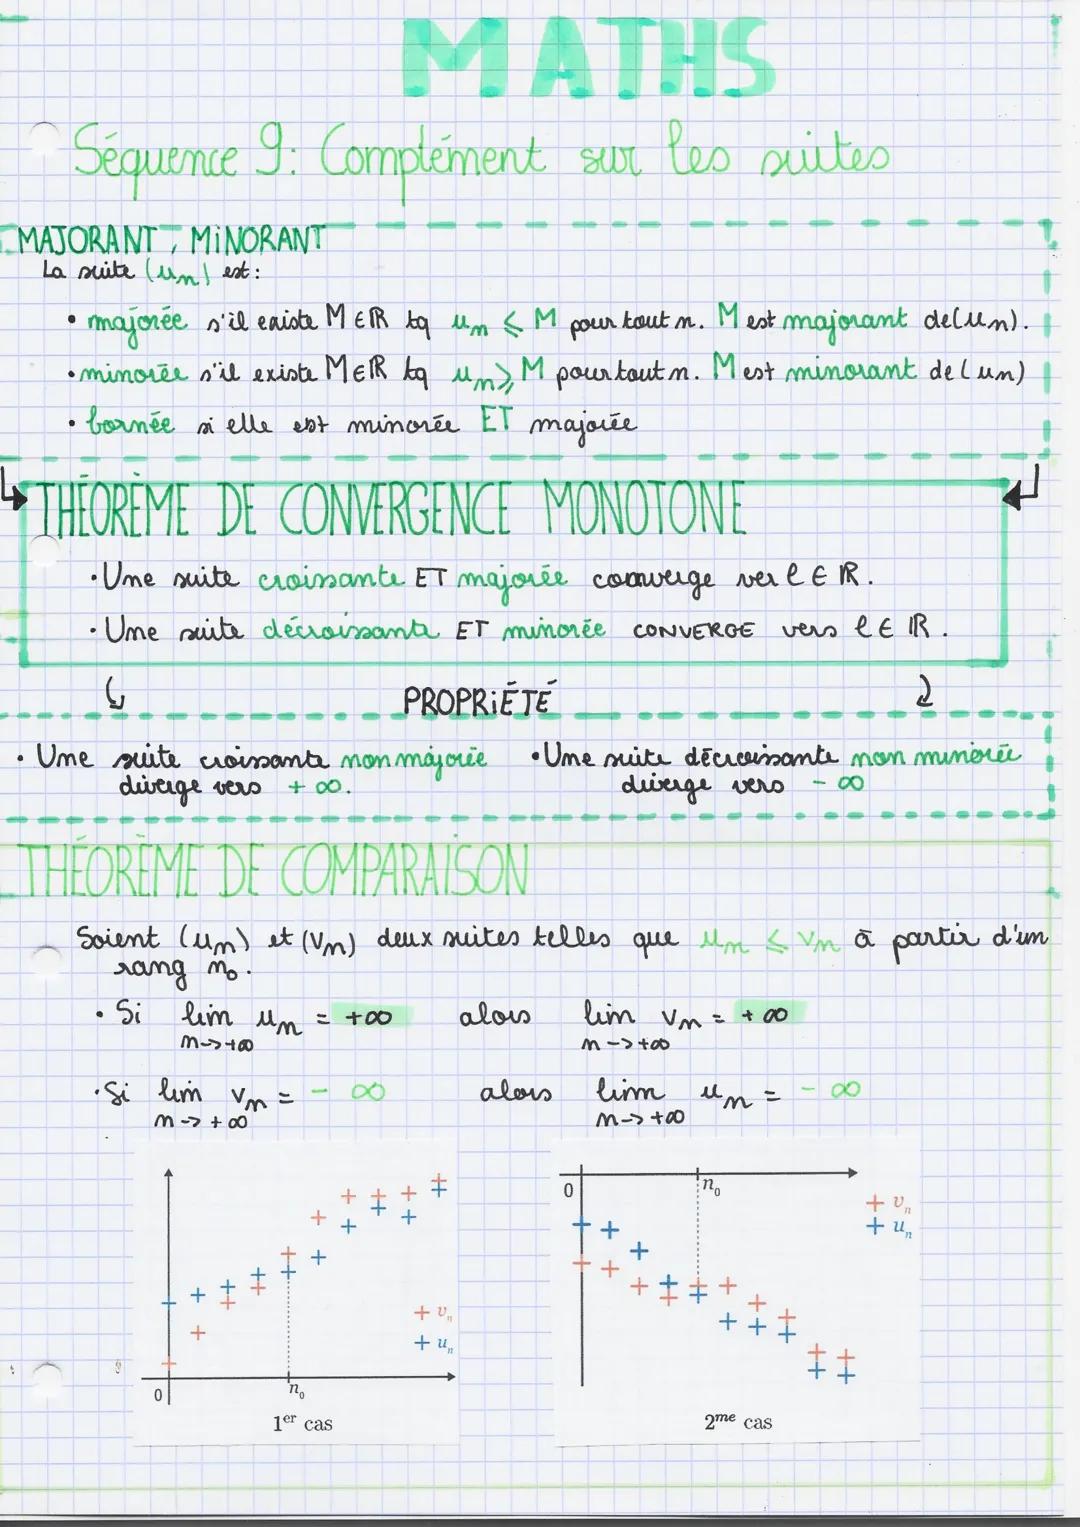 MATHS
Séquence 9: Complément sur les suites
MAJORANT, MINORANT
La suite (un) est:
• majorée s'il existe M ∈ ℝ tq un ⩽ M pour tout n. M est majorant de (un).
• minorée s'il existe M ∈ ℝ tq un ⩾ M pour tout n. M est minorant de (un)
• bornée si elle est minorée ET majorée
THÉORÈME DE CONVERGENCE MONOTONE
• Une suite croissante ET majorée converge ver l ∈ ℝ.
• Une suite décroissante ET minorée CONVERGE vers l ∈ ℝ.
PROPRIÉTÉ
• Une suite croissante non majorée
diverge vers +∞.
• Une suite décroissante non minorée
diverge vers -∞
THÉORÈME DE COMPARAISON
Soient (un) et (Vn) deux suites telles que un ⩽ Vn à partir d'un
rang n₀.
• Si lim un = +∞ alors lim Vn = +∞
n->+∞ n->+∞
• Si lim Vn = -∞ alors lim un = -∞
n->+∞ n->+∞
vn
un
0 n₀
1er cas
0 n₀
vn
un
2me cas